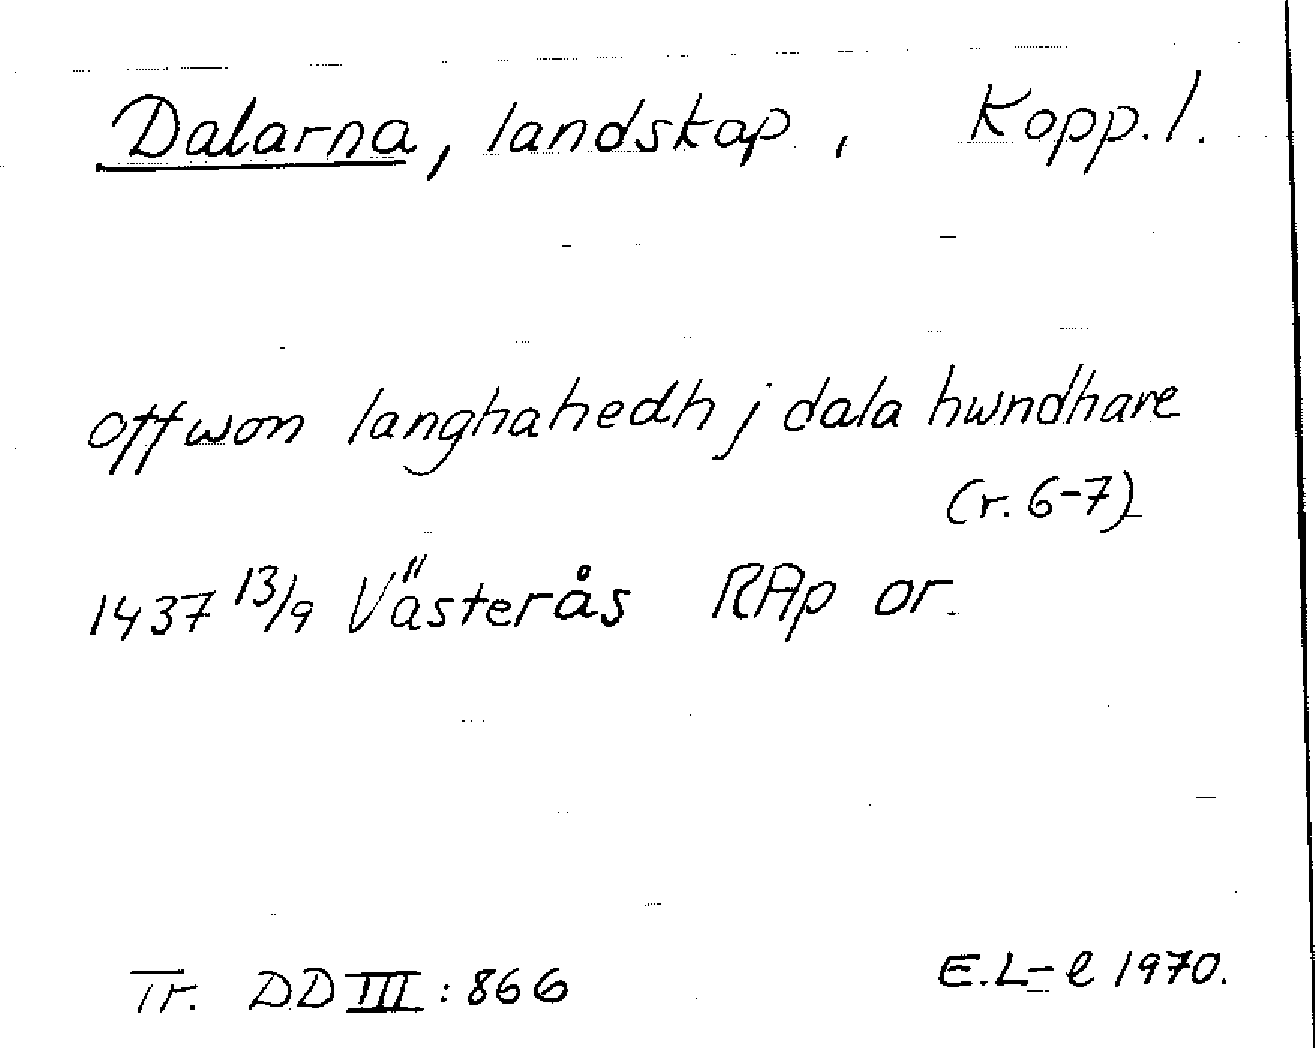 Dalarna, landskap, Kopp. l.
offwon langhahedh j dala hwndhare
(r. 6-7)
1437 13/9 Västerås RAp or.
Tr. DD III: 866 E.L-l 1970.